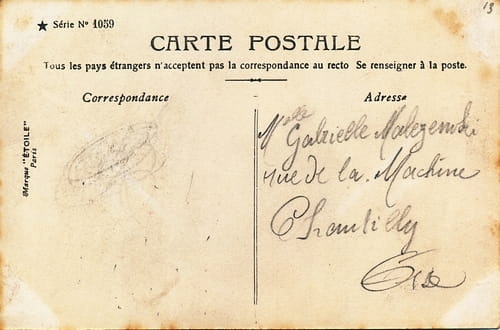 ★ Série N° 1059
13
CARTE POSTALE
Tous les pays étrangers n'acceptent pas la correspondance au recto Se renseigner à la poste.
Correspondance
Adresse
Marque "ÉTOILE"
Paris
Melle Gabrielle Malezenski
rue de la Machine
Chantilly
Oise